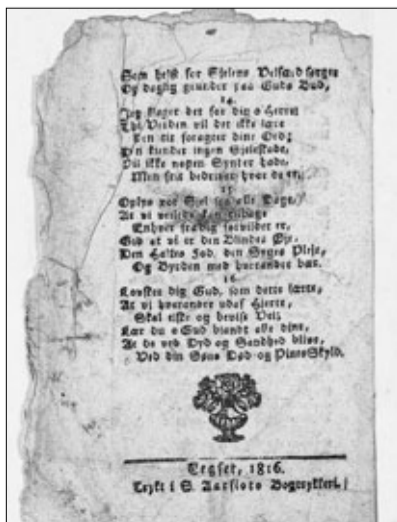 Som helst for Sjelens Velfærd sørger
Og daglig grunder paa Guds Bud,
14.
Jeg klager det for dig o Herre!
Thi Verden vil det ikke lære
Den tit foragter dine Ord;
Den kunder ingen Sjeleskade,
Vil ikke nogen Synter hade,
Men frit bedriver hvor de er.
15
Oplys vor Sjel alle Dage,
At vi veilede kan tilbage
Enhver fra dig forvildet er,
Gid at vi er den Blindes Øje,
Den Haltes Fod, den Syges Pleje,
Og Byrden med hverandre bær.
16
Lovsket dig Gud, som dette lærte,
At vi hverandre udaf Hjerte,
Skal elske og bevise Vel;
Lær du o Gud blandt alle dine,
At de ved Dyd og Sandhed blive,
Ved din Søns Død og Pines Skyld.
Trykt i S. Aarflots Bogtrykkeri.
1816.